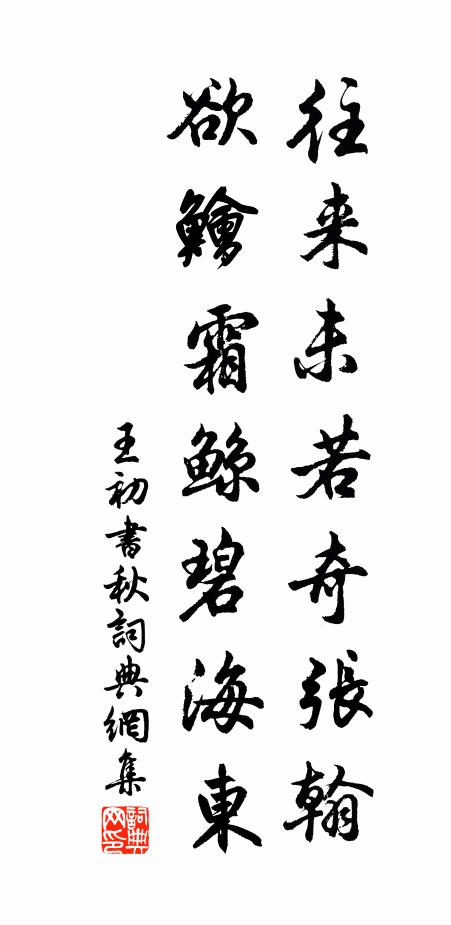 往来未若奇張翰
欲鱠霜鯨碧海東
王初書秋詞典網集
詞典网印